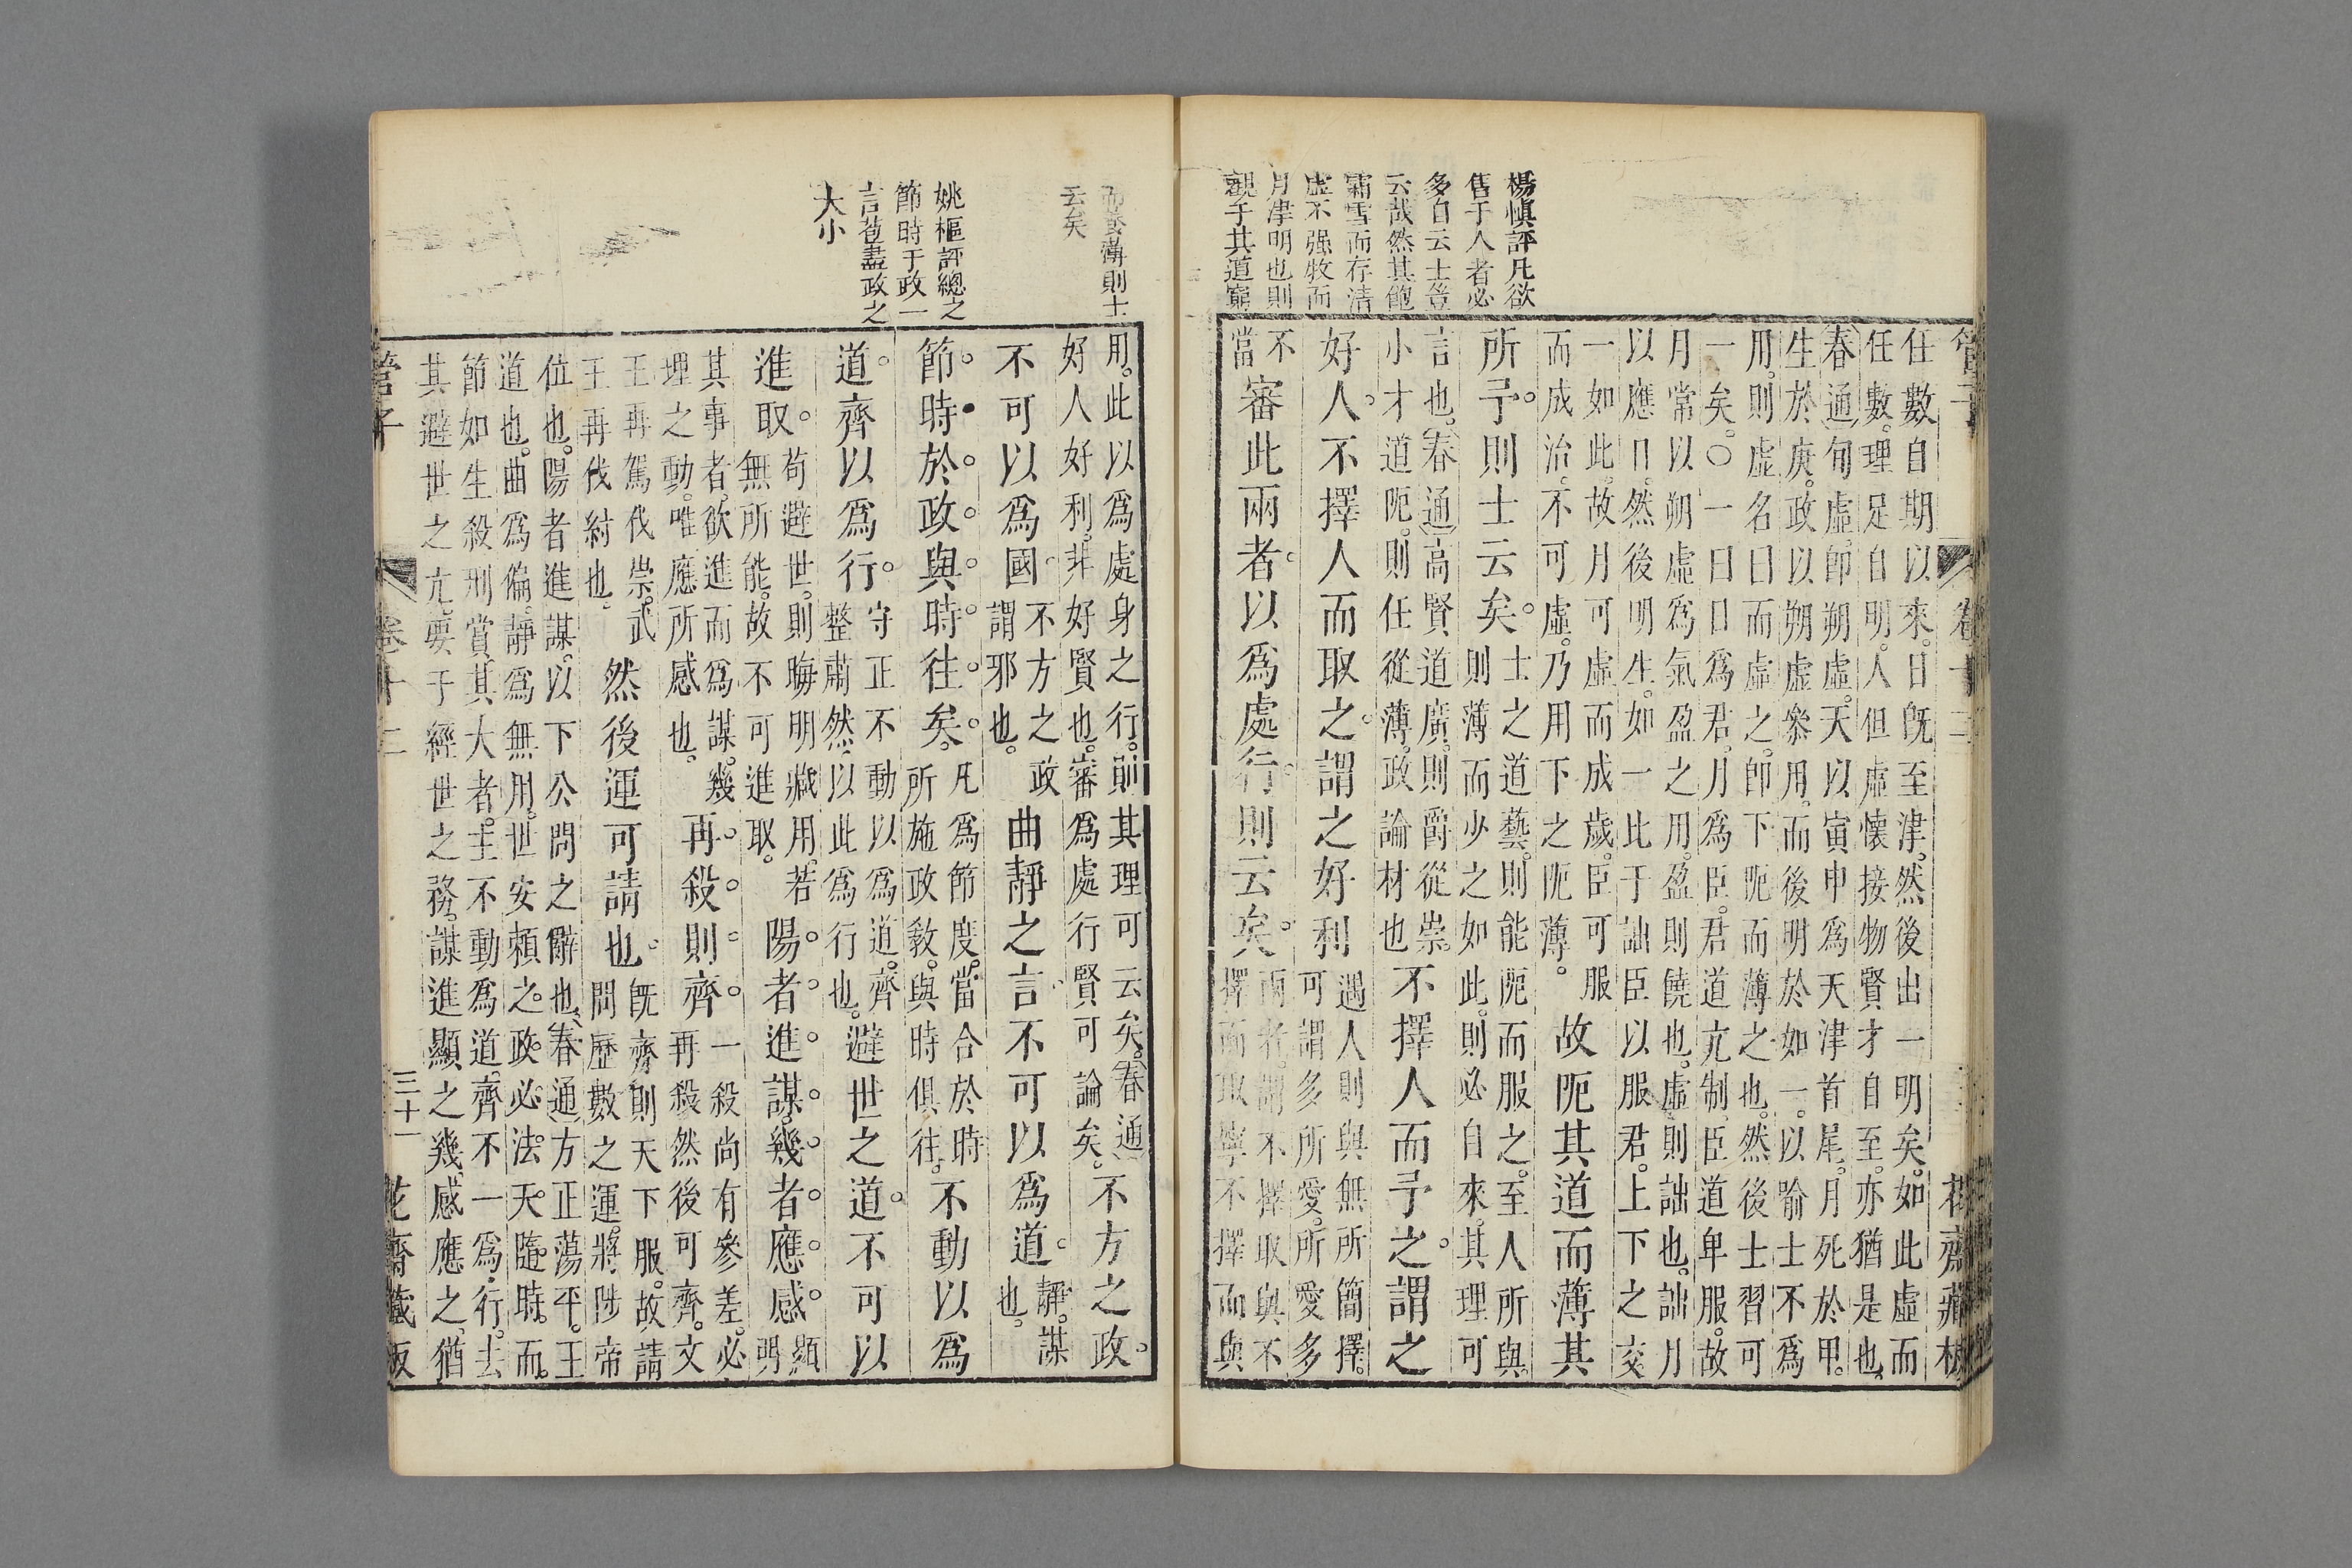 管子
卷十二
花齋藏板
楊慎評凡欲
售于人者必
多自云士豈
云哉然其飽
霜雪而存清
虛不强牧而
月津明也則
親于其道窮
任數自期以來。日既至津。然後出一明矣。如此虛而
任數。理足自明。人但虛懷接物賢才自至。亦猶是也。
春通句虛。即朔虛。天以寅申爲天津首尾。月死於甲。
生於庚。政以朔虛叅用。而後明於如一。以喻士不爲
用。則虛名曰而虛之。卽下阨而薄之也。然後士習可
一矣。〇一曰日爲君。月爲臣。君道亢制。臣道卑服。故
月常以朔虛爲氣盈之用。盈則饒也。虛則詘也。詘月
以應日。然後明生。如一比于詘臣以服君。上下之交
一如此。故月可虛而成歲。臣可服
而成治。不可虛。乃用下之阨薄。
故阨其道而薄其
所予。則士云矣。
士之道藝。則能阨而服之。至人所與。
則薄而少之如此。則必自來。其理可
言也。春通高賢道廣。則爵從崇。
小才道阨。則任從薄。政論材也
不擇人而予之。謂之
好人。不擇人而取之。謂之好利
遇人則與無所簡擇。
可謂多所愛。所愛多
不
當
審此兩者。以爲處行。則云矣。
兩者。謂不擇取與不
擇而取寧不擇而與
而致薄則士
云矣
姚樞評總之
節時于政一
言苞盡政之
大小
用。此以爲處身之行。前其理可云矣。春通
好人好利。非好賢也。審爲處行賢可論矣。
不方之政。
不可以爲國。
不方之政
謂邪也。
曲靜之言。不可以爲道。
靜。謀
也。
節。時於政。與時往矣。
凡爲節度。當合於時
所施政敎。與時俱往。
不動以爲
道。齊以爲行。
守正不動以爲道。齊
整肅然。以此爲行也。
避世之道。不可以
進取。
苟避世。則晦明藏用。若
無所能。故不可進取。
陽者進謀。幾者應感。
顯
明
其事者。欲進而爲謀。幾
理之動。唯應所感也。
再殺則齊。
一殺尚有參差。必
再殺然後可齊。文
王再駕伐崇。武
王再伐紂也。
然後運可請也。
既齊則天下服。故請
問歷數之運。將陟帝
位也。陽者進謀。以下公問之辭也。春通方正蕩平。王
道也。曲爲偏。靜爲無用。世安賴之。政必法天。隨時。而
節如生殺刑賞。其大者。主不動爲道。齊不一爲行。去
其避世之亢。要于經世之務。謀進顯之幾。感應之。猶
管子
卷十二
三十一
花齋藏板